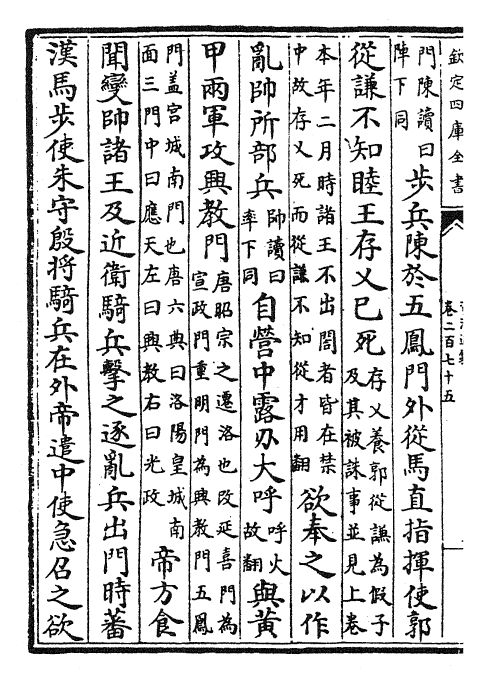 欽定四庫全書
卷二百七十五
門陳讀曰
陣下同
步兵陳於五鳳門外從馬直指揮使郭
從謙不知睦王存乂已死
存乂養郭從謙為假子
及其被誅事並見上卷
本年二月時諸王不出閤者皆在禁
中故存乂死而從謙不知從才用翻
欲奉之以作
亂帥所部兵
帥讀曰
率下同
自營中露刃大呼
呼火
故翻
與黃
甲兩軍攻興教門
唐昭宗之遷洛也改延喜門為
宣政門重明門為興教門五鳳
門盖宫城南門也唐六典曰洛陽皇城南
面三門中曰應天左曰興教右曰光政
帝方食
聞變帥諸王及近衛騎兵擊之逐亂兵出門時蕃
漢馬步使朱守殷將騎兵在外帝遣中使急召之欲